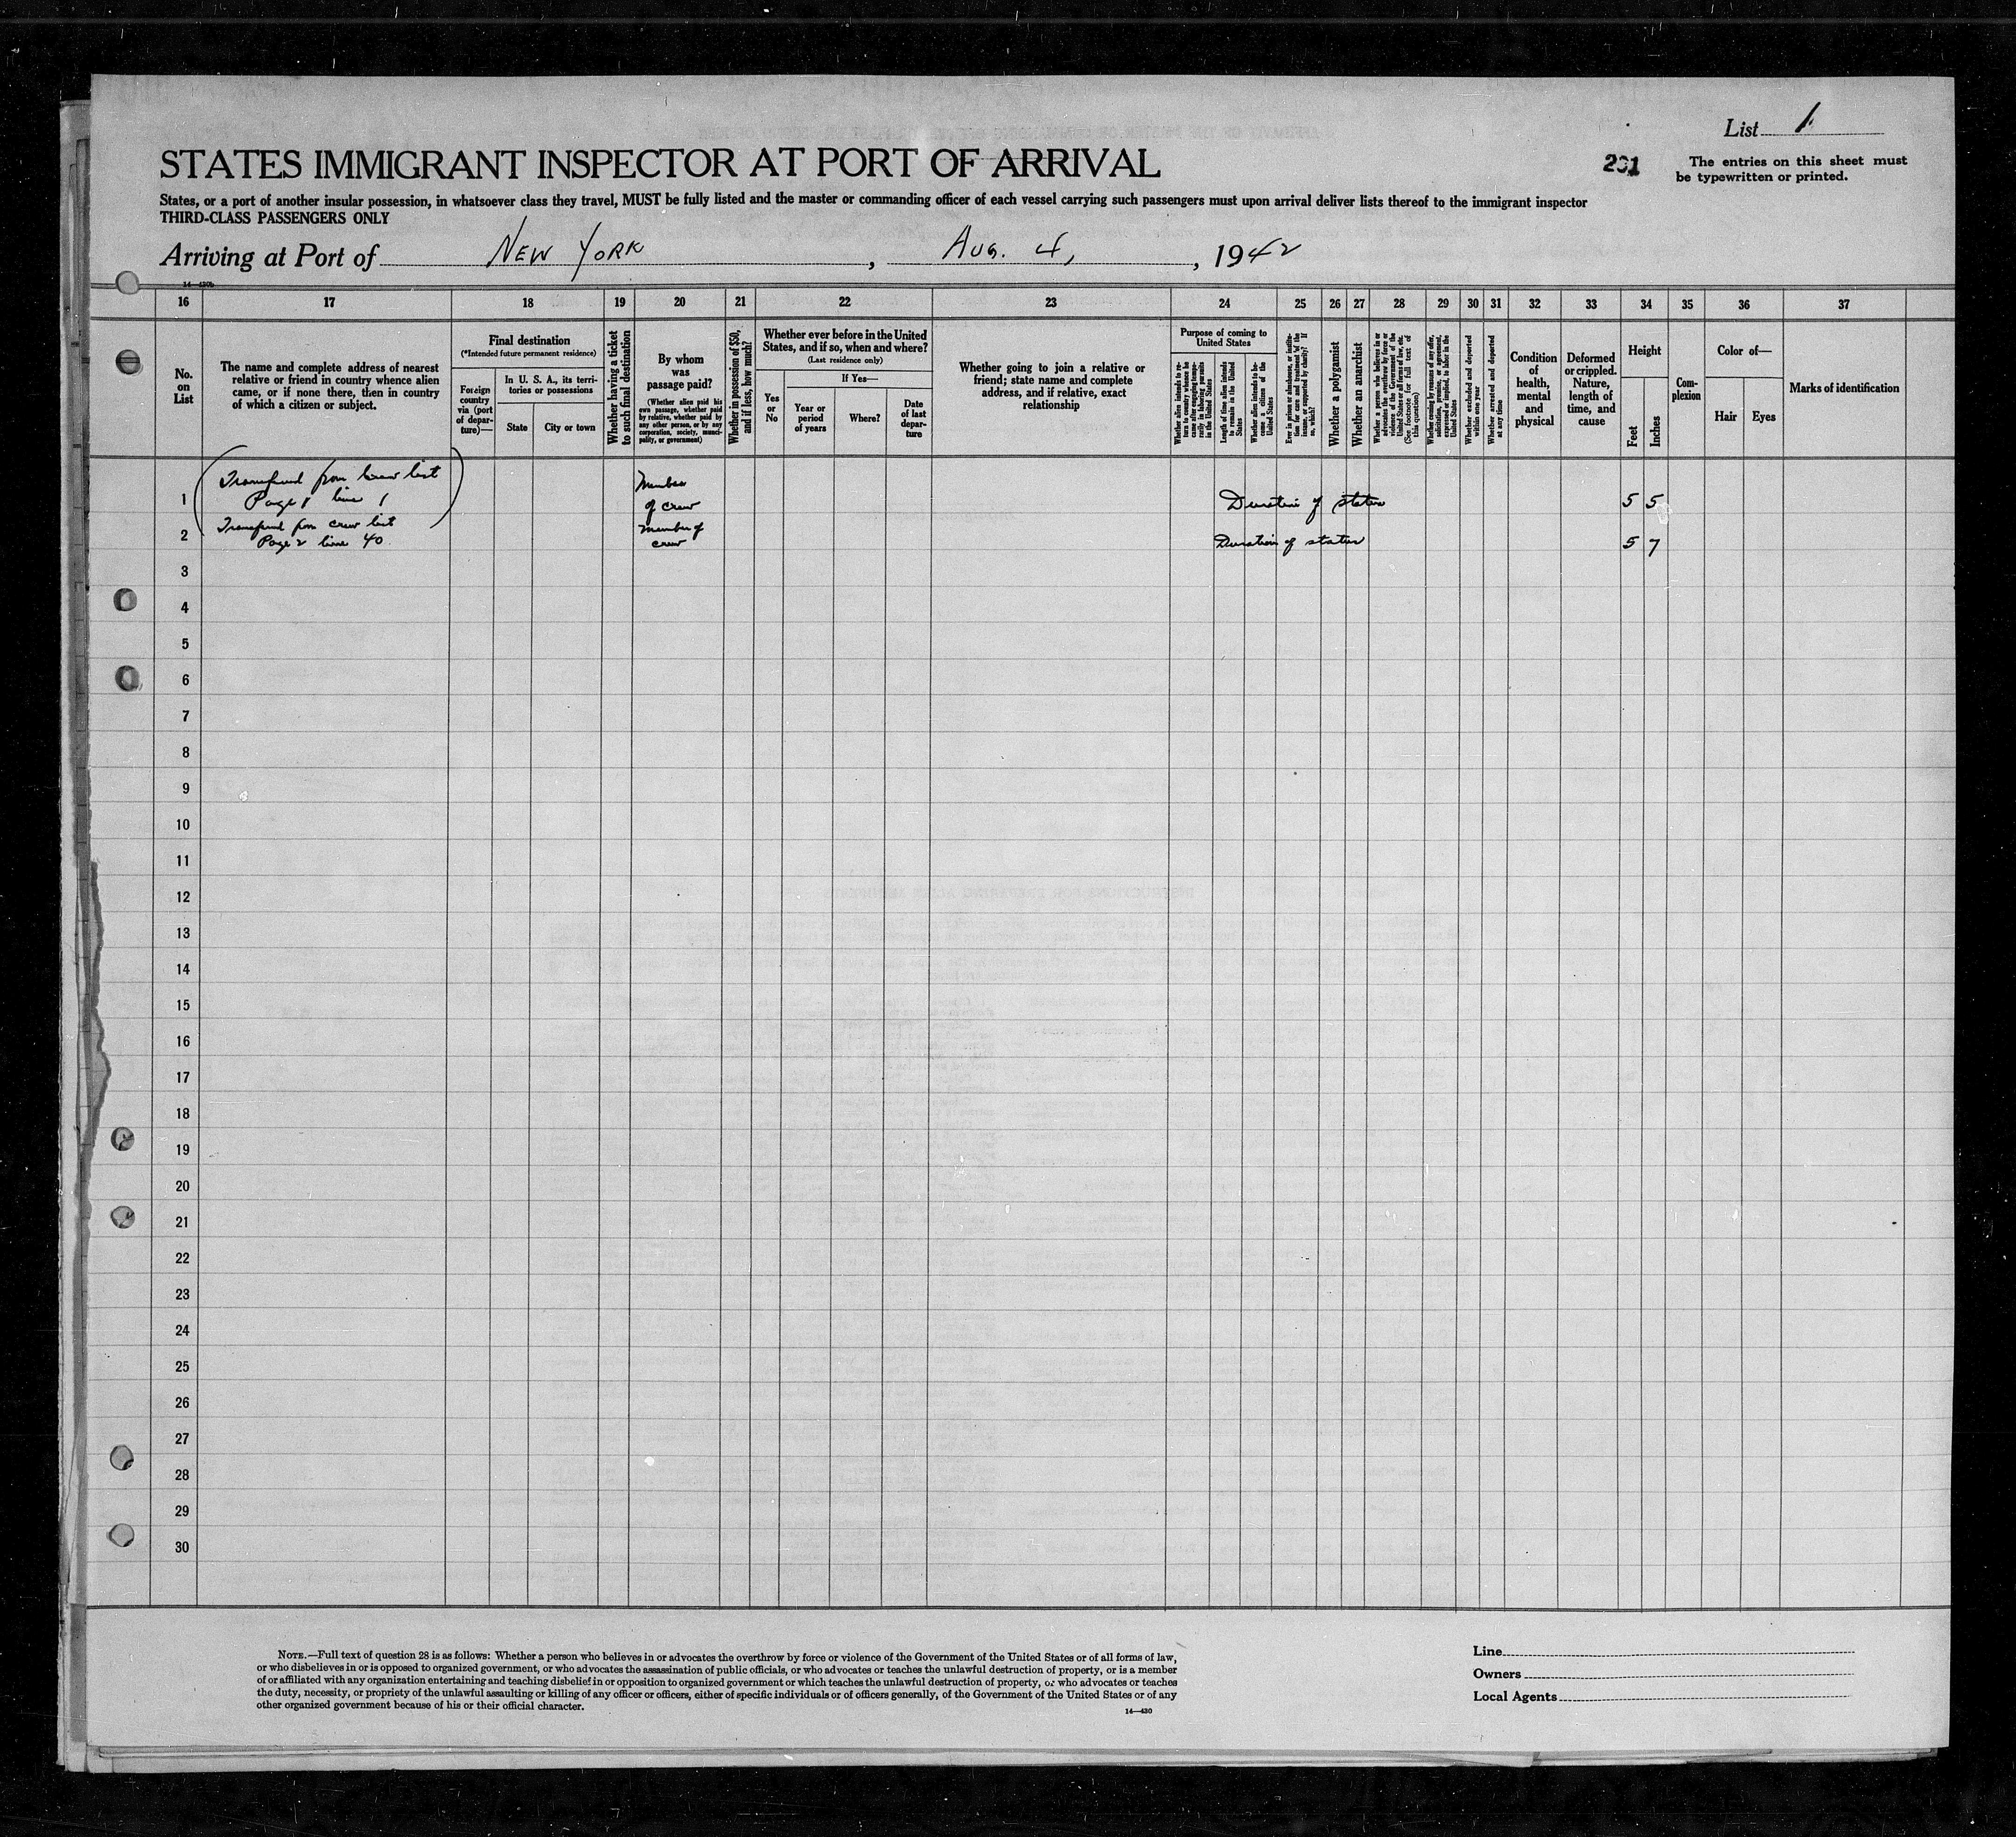 List 1
STATES IMMIGRANT INSPECTOR AT PORT OF ARRIVAL
201
The entries on this sheet must
be typewritten or printed.
States, or a port of another insular possession, in whatsoever class they travel, MUST be fully listed and the master or commanding officer of each vessel carrying such passengers must upon arrival deliver lists thereof to the immigrant inspector
THIRD-CLASS PASSENGERS ONLY
Arriving at Port of NEW YORK, AUG. 4, 1942
14—430b
16 17 18 19 20 21 22 23 24 25 26 27 28 29 30 31 32 33 34 35 36 37
No.
on
List
The name and complete address of nearest
relative or friend in country whence alien
came, or if none there, then in country
of which a citizen or subject.
Final destination
(*Intended future permanent residence)
Foreign
country
via (port
of depar-
ture)—
In U. S. A., its terri-
tories or possessions
State
City or town
Whether having a ticket
to such final destination
By whom
was
passage paid?
(Whether alien paid his
own passage, whether paid
by relative, whether paid by
any other person, or by any
corporation, society, munici-
pality, or government)
Whether in possession of $50,
and if less, how much?
Whether ever before in the United
States, and if so, when and where?
(Last residence only)
Yes
or
No
If Yes—
Year or
period
of years
Where?
Date
of last
depar-
ture
Whether going to join a relative or
friend; state name and complete
address, and if relative, exact
relationship
Purpose of coming to
United States
Whether alien intends to re-
turn to country whence he
came after engaging tempo-
rarily in laboring pursuits
in the United States
Length of time alien intends
to remain in the United
States
Whether alien intends to be-
come a citizen of the
United States
Ever in prison or almshouse, or institu-
tion for care and treatment of the
insane, or supported by charity? If
so, which?
Whether a polygamist
Whether an anarchist
Whether a person who believes in or
advocates the overthrow by force or
violence of the Government of the
United States or all forms of law, etc.
(See footnote for full text of
this question)
Whether coming by reason of any offer,
solicitation, promise, or agreement,
expressed or implied, to labor in the
United States
Whether excluded and deported
within one year
Whether arrested and deported
at any time
Condition
of
health,
mental
and
physical
Deformed
or crippled.
Nature,
length of
time, and
cause
Height
Feet
Inches
Com-
plexion
Color of—
Hair
Eyes
Marks of identification
Transferred from crew list
1 Page 1 line 1
Member
of crew
Duration of status 5 5
Transferred from crew list
2 Page 2 line 40
Member of
crew
Duration of status 5 7
3
4
5
6
7
8
9
10
11
12
13
14
15
16
17
18
19
20
21
22
23
24
25
26
27
28
29
30
NOTE.—Full text of question 28 is as follows: Whether a person who believes in or advocates the overthrow by force or violence of the Government of the United States or of all forms of law,
or who disbelieves in or is opposed to organized government, or who advocates the assassination of public officials, or who advocates or teaches the unlawful destruction of property, or is a member
of or affiliated with any organization entertaining and teaching disbelief in or opposition to organized government or which teaches the unlawful destruction of property, or who advocates or teaches
the duty, necessity, or propriety of the unlawful assaulting or killing of any officer or officers, either of specific individuals or of officers generally, of the Government of the United States or of any
other organized government because of his or their official character.
14—430
Line
Owners
Local Agents